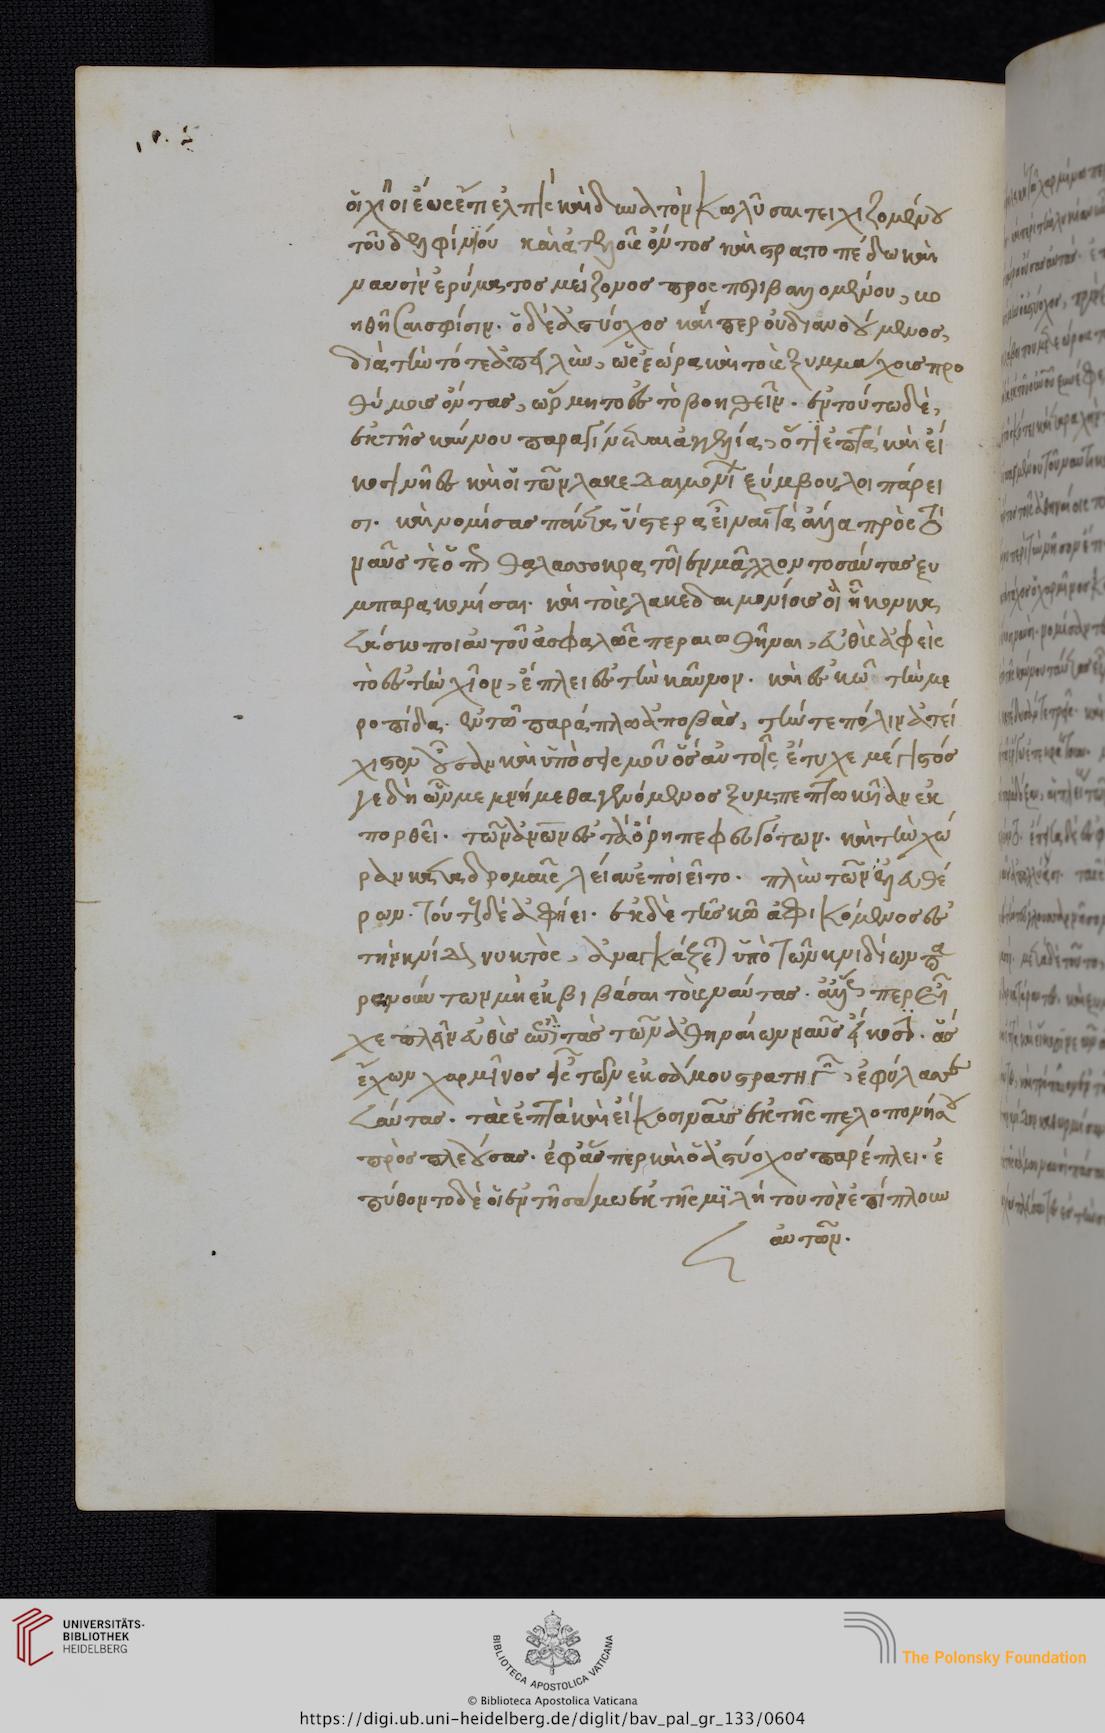 οἱ χῖοι ἕως ἔτι ἐλπὶς καὶ δυνατὸν κωλῦσαι τειχιζομένου
τοῦ δελφινίου καὶ ἀτελοῦς ὄντος καὶ στρατοπέδω καὶ
ναυσὶν ἐρύματος μείζονος προσπεριβαλομένου, βο
ηθῆσαι σφίσιν. ὁ δὲ ἀστύοχος καίπερ οὐ διανοούμενος,
διὰ τὴν τότε ἀπειλὴν, ὡς ἑώρα καὶ τοὺς ξυμμάχους προ
θύμους ὄντας, ὥρμητο ἐς τὸ βοηθεῖν. ἐν τούτω δὲ,
ἐκ τῆς καύνου παραγίνεται ἀγγελία, ὅτι ἑπτὰ καὶ εἴ
κοσι νῆες καὶ οἱ τῶν λακεδαιμονίων ξύμβουλοι πάρει
σι. καὶ νομίσας πάντα ὕστερα εἶναι τἆλλα πρὸς τὸ
ναῦς τε ὅπως θαλασσοκρατοῖεν μᾶλλον τοσαύτας ξυ
μπαρακομίσαι. καὶ τοὺς λακεδαιμονίους οἳ ἧκον κα
τάσκοποι αὐτοῦ ἀσφαλῶς περαιωθῆναι, εὐθὺς ἀφεὶς
τὸ ἐς τὴν χῖον, ἔπλει ἐς τὴν καῦνον. καὶ ἐς κῶ τὴν με
ροπίδα. ἐν τῶ παράπλω ἀποβὰς, τήν τε πόλιν ἀτεί
χιστον οὖσαν καὶ ὑπὸ σεισμοῦ ὃς αὐτοῖς ἔτυχε μέγιστός
γε δὴ ὧν μεμνήμεθα γενόμενος ξυμπεπτωκυῖαν ἐκ
πορθεῖ. τῶν ἀνθρώπων ἐς τὰ ὄρη πεφευγότων. καὶ τὴν χώ
ραν καταδρομαῖς λείαν ἐποιεῖτο. πλὴν τῶν ἐλευθέ
ρων. τούτους δὲ ἀφίει. ἐκ δὲ τῆς κῶ ἀφικόμενος ἐς
τὴν κνίδον νυκτὸς, ἀναγκάζεται ὑπὸ τῶν κνιδίων πα
ραινούντων μὴ ἐκβιβάσαι τοὺς ναύτας. ἀλλ' ὥσπερ εἶ
χε πλεῖν εὐθὺς ἐπὶ τὰς τῶν ἀθηναίων ναῦς εἴκοσι. ἃς
ἔχων χαρμῖνος εἷς τῶν ἐκ σάμου στρατηγῶν, ἐφύλασσε
ταύτας. τὰς ἑπτὰ καὶ εἴκοσι ναῦς ἐκ τῆς πελοποννήσου
προσπλεούσας. ἐφ' ἅσπερ καὶ ὁ ἀστύοχος παρέπλει. ἐ
πύθοντο δὲ οἱ ἐν τῆ σάμω ἐκ τῆς μιλήτου τὸν ἐπίπλουν
αὐτῶν.
UNIVERSITÄTS-
BIBLIOTHEK
HEIDELBERG
BIBLIOTECA APOSTOLICA VATICANA
The Polonsky Foundation
© Biblioteca Apostolica Vaticana
https://digi.ub.uni-heidelberg.de/diglit/bav_pal_gr_133/0604